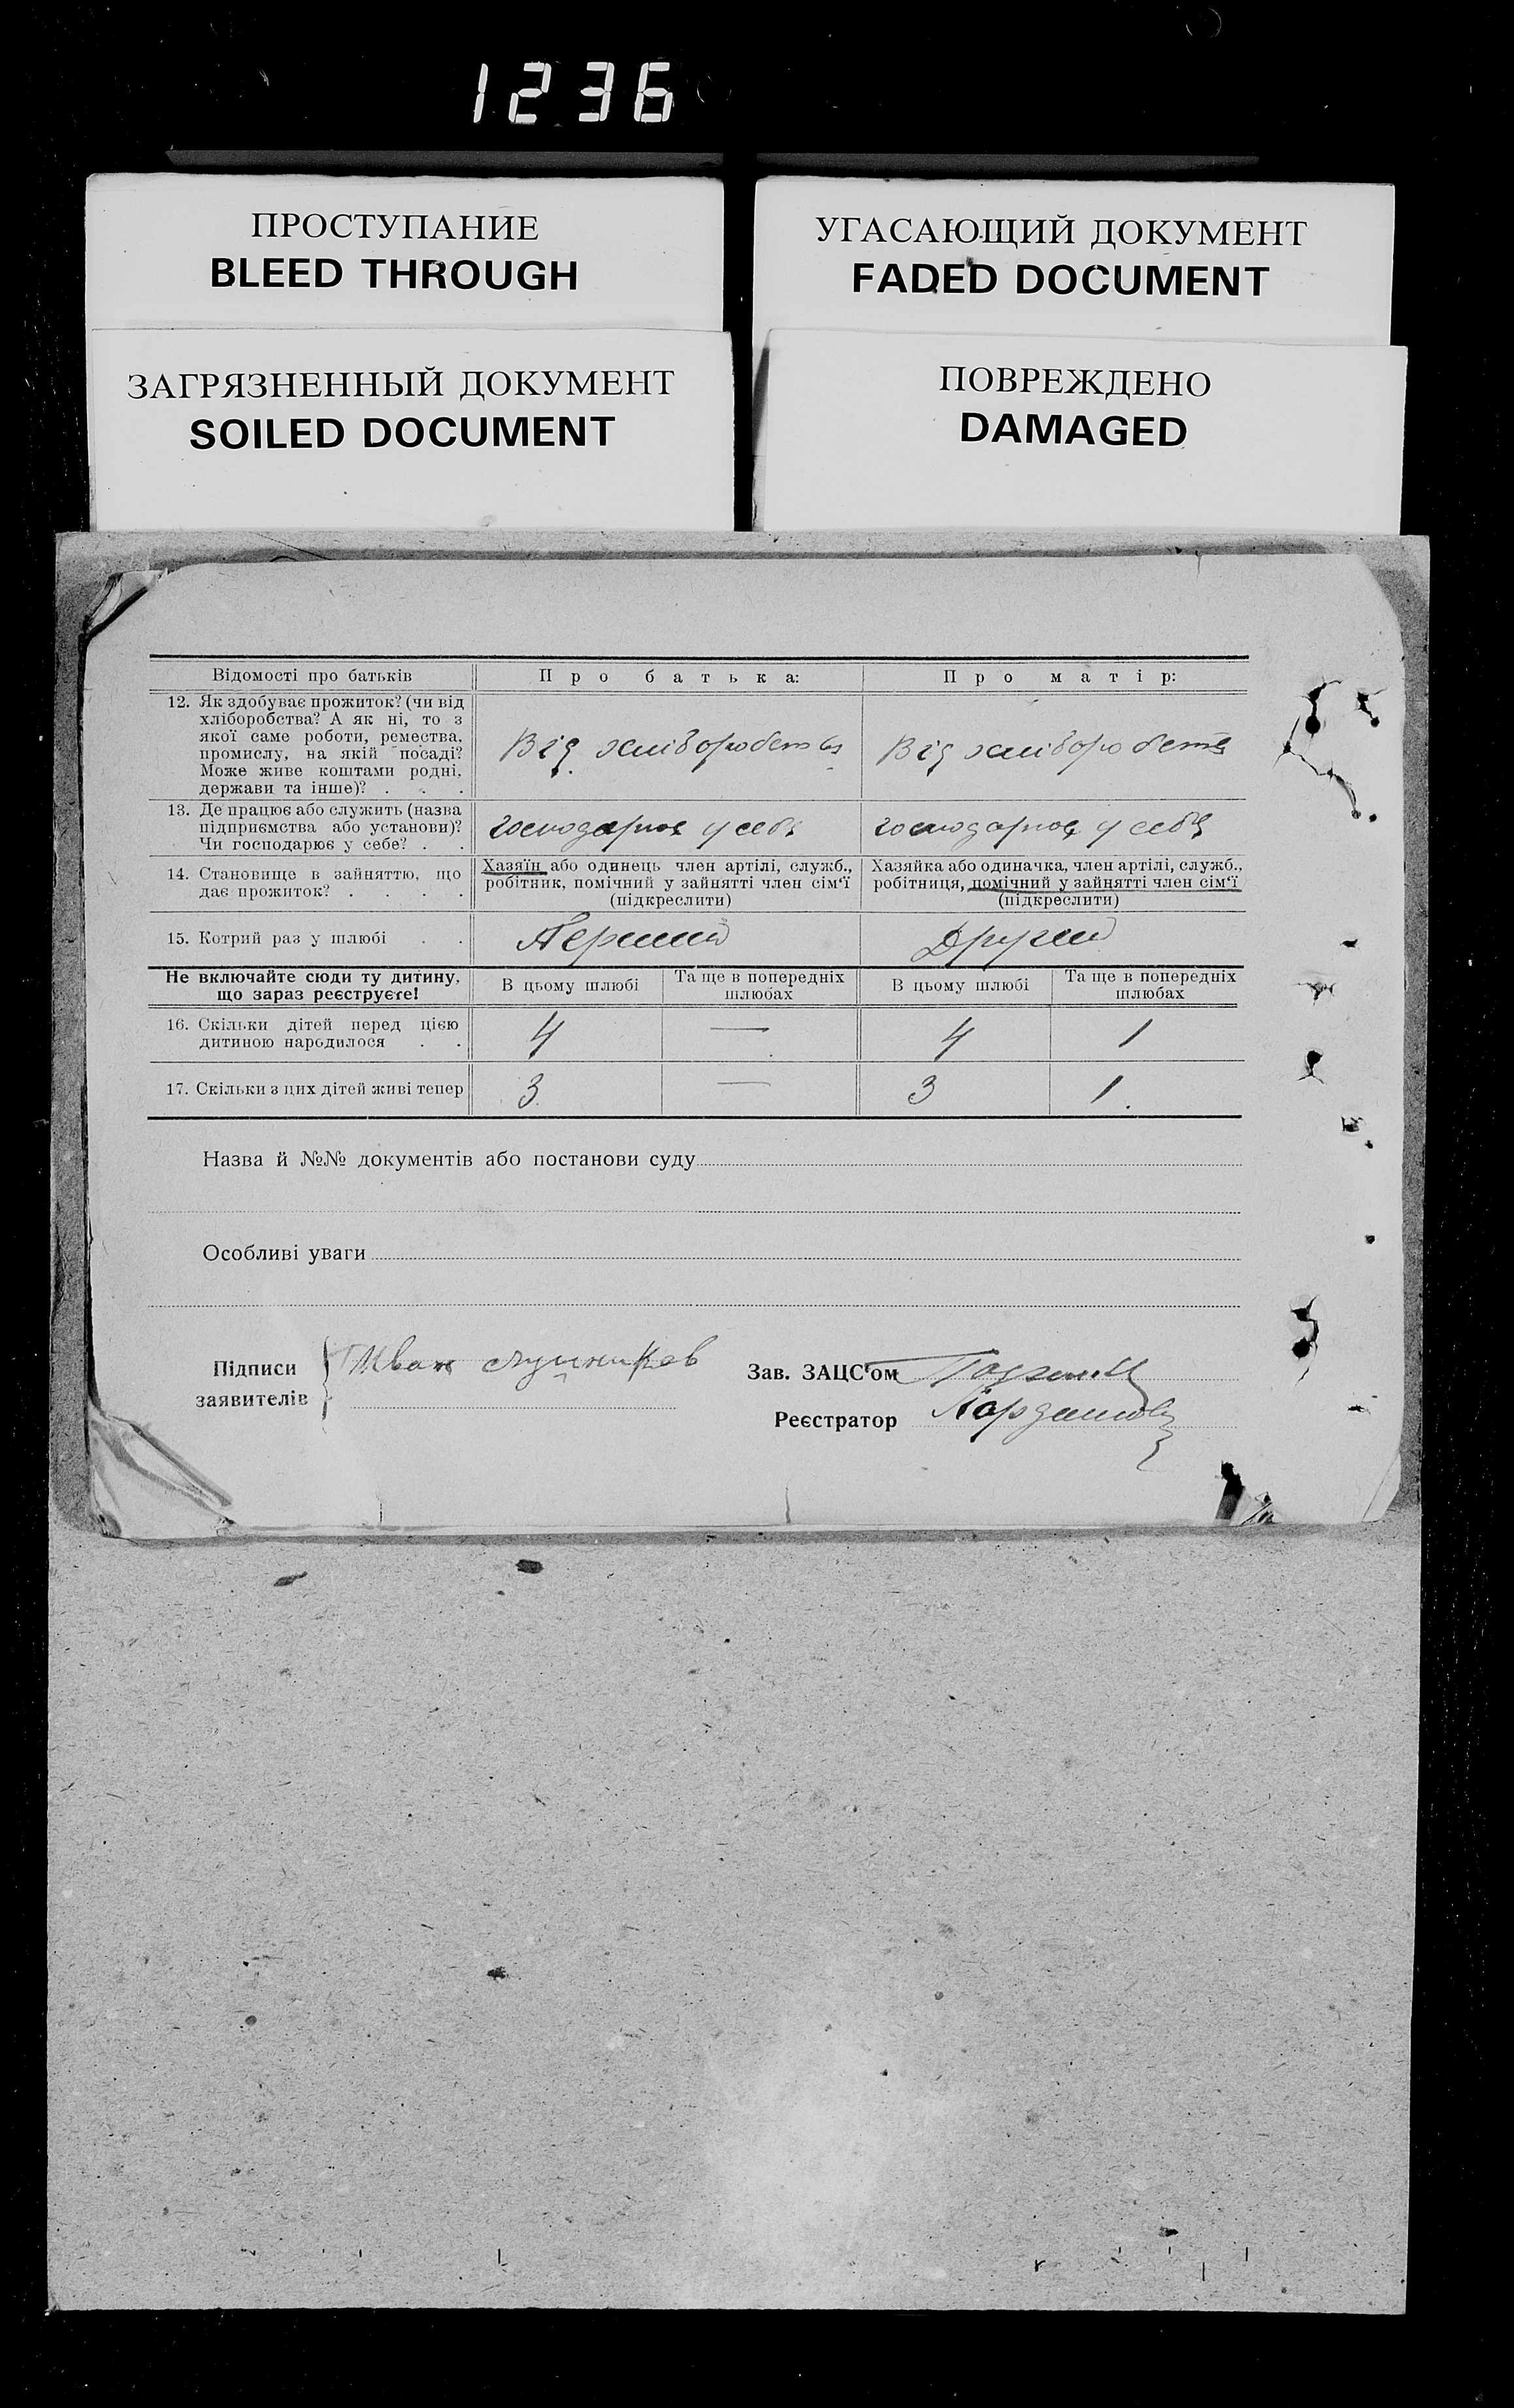 1236
ПРОСТУПАНИЕ
BLEED THROUGH
УГАСАЮЩИЙ ДОКУМЕНТ
FADED DOCUMENT
ЗАГРЯЗНЕННЫЙ ДОКУМЕНТ
SOILED DOCUMENT
ПОВРЕЖДЕНО
DAMAGED
Відомості про батьків
Про батька:
Про матір:
12. Як здобуває прожиток? (чи від
хліборобства? А як ні, то з
якої саме роботи, ремества,
промислу, на якій посаді?
Може живе коштами родні,
держави та інше)? . . .
Від хліборобства
Від хліборобства
13. Де працює або служить (назва
підприємства або установи)?
Чи господарює у себе? . .
господарює у себе
господарює у себе
14. Становище в зайняттю, що
дає прожиток? . . . .
Хазяїн або одинець член артілі, служб.,
робітник, помічний у зайнятті член сім'ї
(підкреслити)
Хазяйка або одиначка, член артілі, служб.,
робітниця, помічний у зайнятті член сім'ї
(підкреслити)
15. Котрий раз у шлюбі . .
Перший
Другий
Не включайте сюди ту дитину,
що зараз реєструєте!
В цьому шлюбі
Та ще в попередніх
шлюбах
В цьому шлюбі
Та ще в попередніх
шлюбах
16. Скільки дітей перед цією
дитиною народилося . .
4
—
4
1
17. Скільки з цих дітей живі тепер
3
—
3
1.
Назва й №№ документів або постанови суду
Особливі уваги
Підписи
заявителів
Иван
Зав. ЗАЦС'ом
Реєстратор